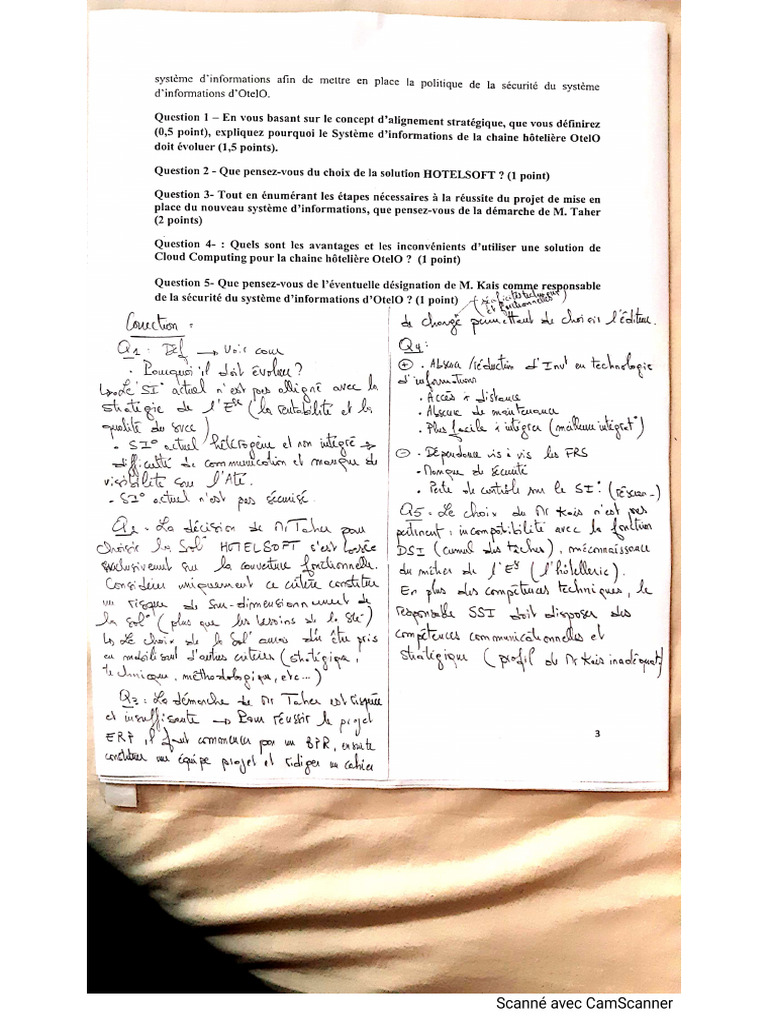 système d'informations afin de mettre en place la politique de la sécurité du système
d'informations d'OtelO.
Question 1 – En vous basant sur le concept d'alignement stratégique, que vous définirez
(0,5 point), expliquez pourquoi le Système d'informations de la chaine hôtelière OtelO
doit évoluer (1,5 points).
Question 2 - Que pensez-vous du choix de la solution HOTELSOFT ? (1 point)
Question 3- Tout en énumérant les étapes nécessaires à la réussite du projet de mise en
place du nouveau système d'informations, que pensez-vous de la démarche de M. Taher
(2 points)
Question 4- : Quels sont les avantages et les inconvénients d'utiliser une solution de
Cloud Computing pour la chaine hôtelière OtelO ? (1 point)
Question 5- Que pensez-vous de l'éventuelle désignation de M. Kais comme responsable
de la sécurité du système d'informations d'OtelO ? (1 point)
Correction :
Q1 : Déf → Voir cour
• Pourquoi il doit évoluer ?
↳ Le SI° actuel n'est pas alligné avec la
stratégie de l'Ese (la rentabilité et la
qualité du svce)
• SI° actuel hétérogène et non intégré →
difficulté de communication et manque de
visibilité sur l'Até.
• SI° actuel n'est pas sécurisé.
Q2 : La décision de Mr Taher pour
choisir la Sol° HOTELSOFT s'est basée
exclusivement sur la couverture fonctionnelle.
Considérer uniquement ce critère constitue
un risque de sur-dimensionnement de
la sol° (plus que les besoins de la Sté)
↳ Le choix de la Sol° aurais dû être pris
en mobilisant d'autres critères (stratégique,
technique, méthodologique, etc...)
Q3 : La démarche de Mr Taher est risquée
et insuffisante → Pour réussir le projet
ERP, il faut commencer par un BPR, ensuite
constituer une équipe projet et rédiger un cahier
(spécificités techniques
et fonctionnelles)
de charge permettant de choisir l'éditeur.
Q4 :
+ • Absence / réduction d'Invt en technologie
d'informations
• Accès à distance
• Absence de maintenance
• Plus facile à intégrer (meilleure intégrat°)
- • Dépendance vis à vis les FRS
• Manque de sécurité
• Perte de contrôle sur le SI° (réseau -)
Q5 : Le choix de Mr Kais n'est pas
pertinent : incompatibilité avec la fonction
DSI (cumul des taches), méconnaissance
du métier de l'Ese (l'hôtellerie).
En plus des compétences techniques, le
responsable SSI doit disposer des
compétences communicationnelles et
stratégique (profil de Mr Kais inadéquat)
3
Scanné avec CamScanner